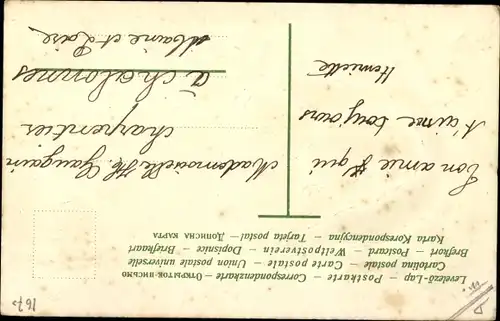 Levelező-Lap — Postkarte — Correspondenzkarte — Открытое письмо
Cartolina postale — Carte postale — Union postale universelle
Brefkort — Postcard — Weltpostverein — Dopisnice — Briefkaart
Karta Korespondencyjna — Tarjeta postal — Дописна карта
Ton amie qui
t'aime toujours
Henriette
Mademoiselle
charpentier
à chalonnes
Maine et Loire